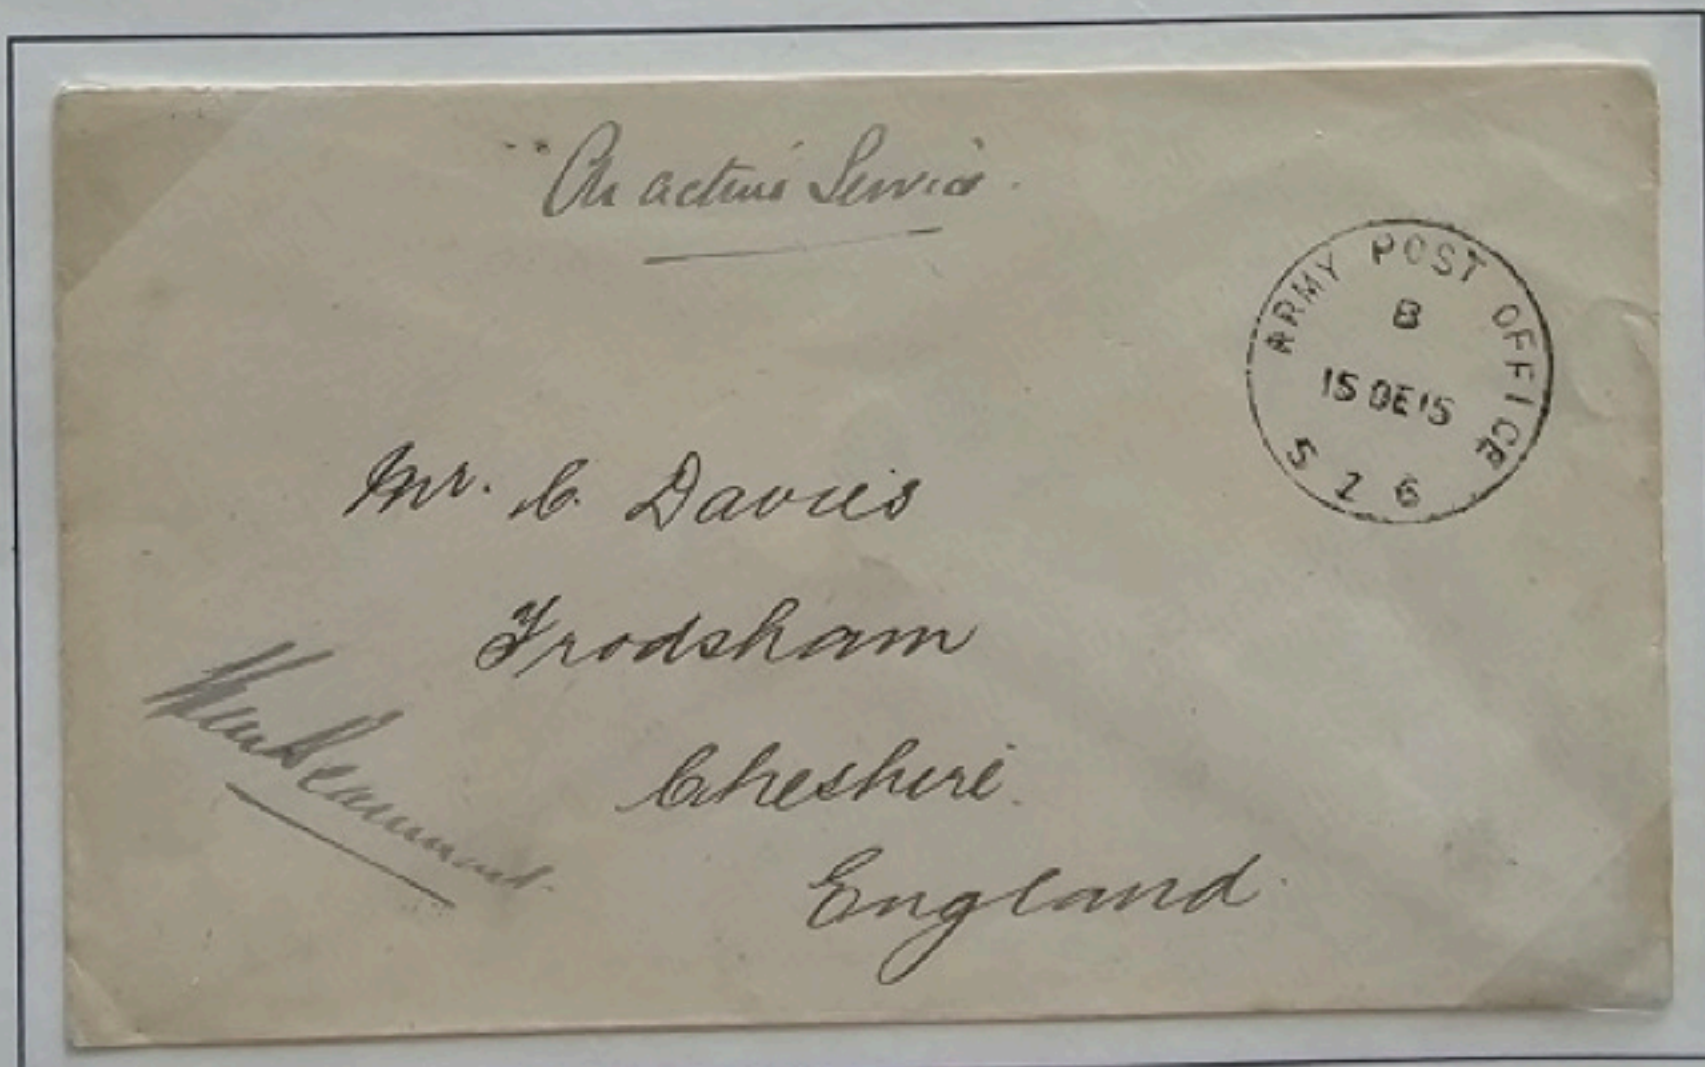 On active Service.
ARMY POST OFFICE
B
15 DE 15
S Z 6
Mr. C. Davies
Frodsham
Cheshire.
England.